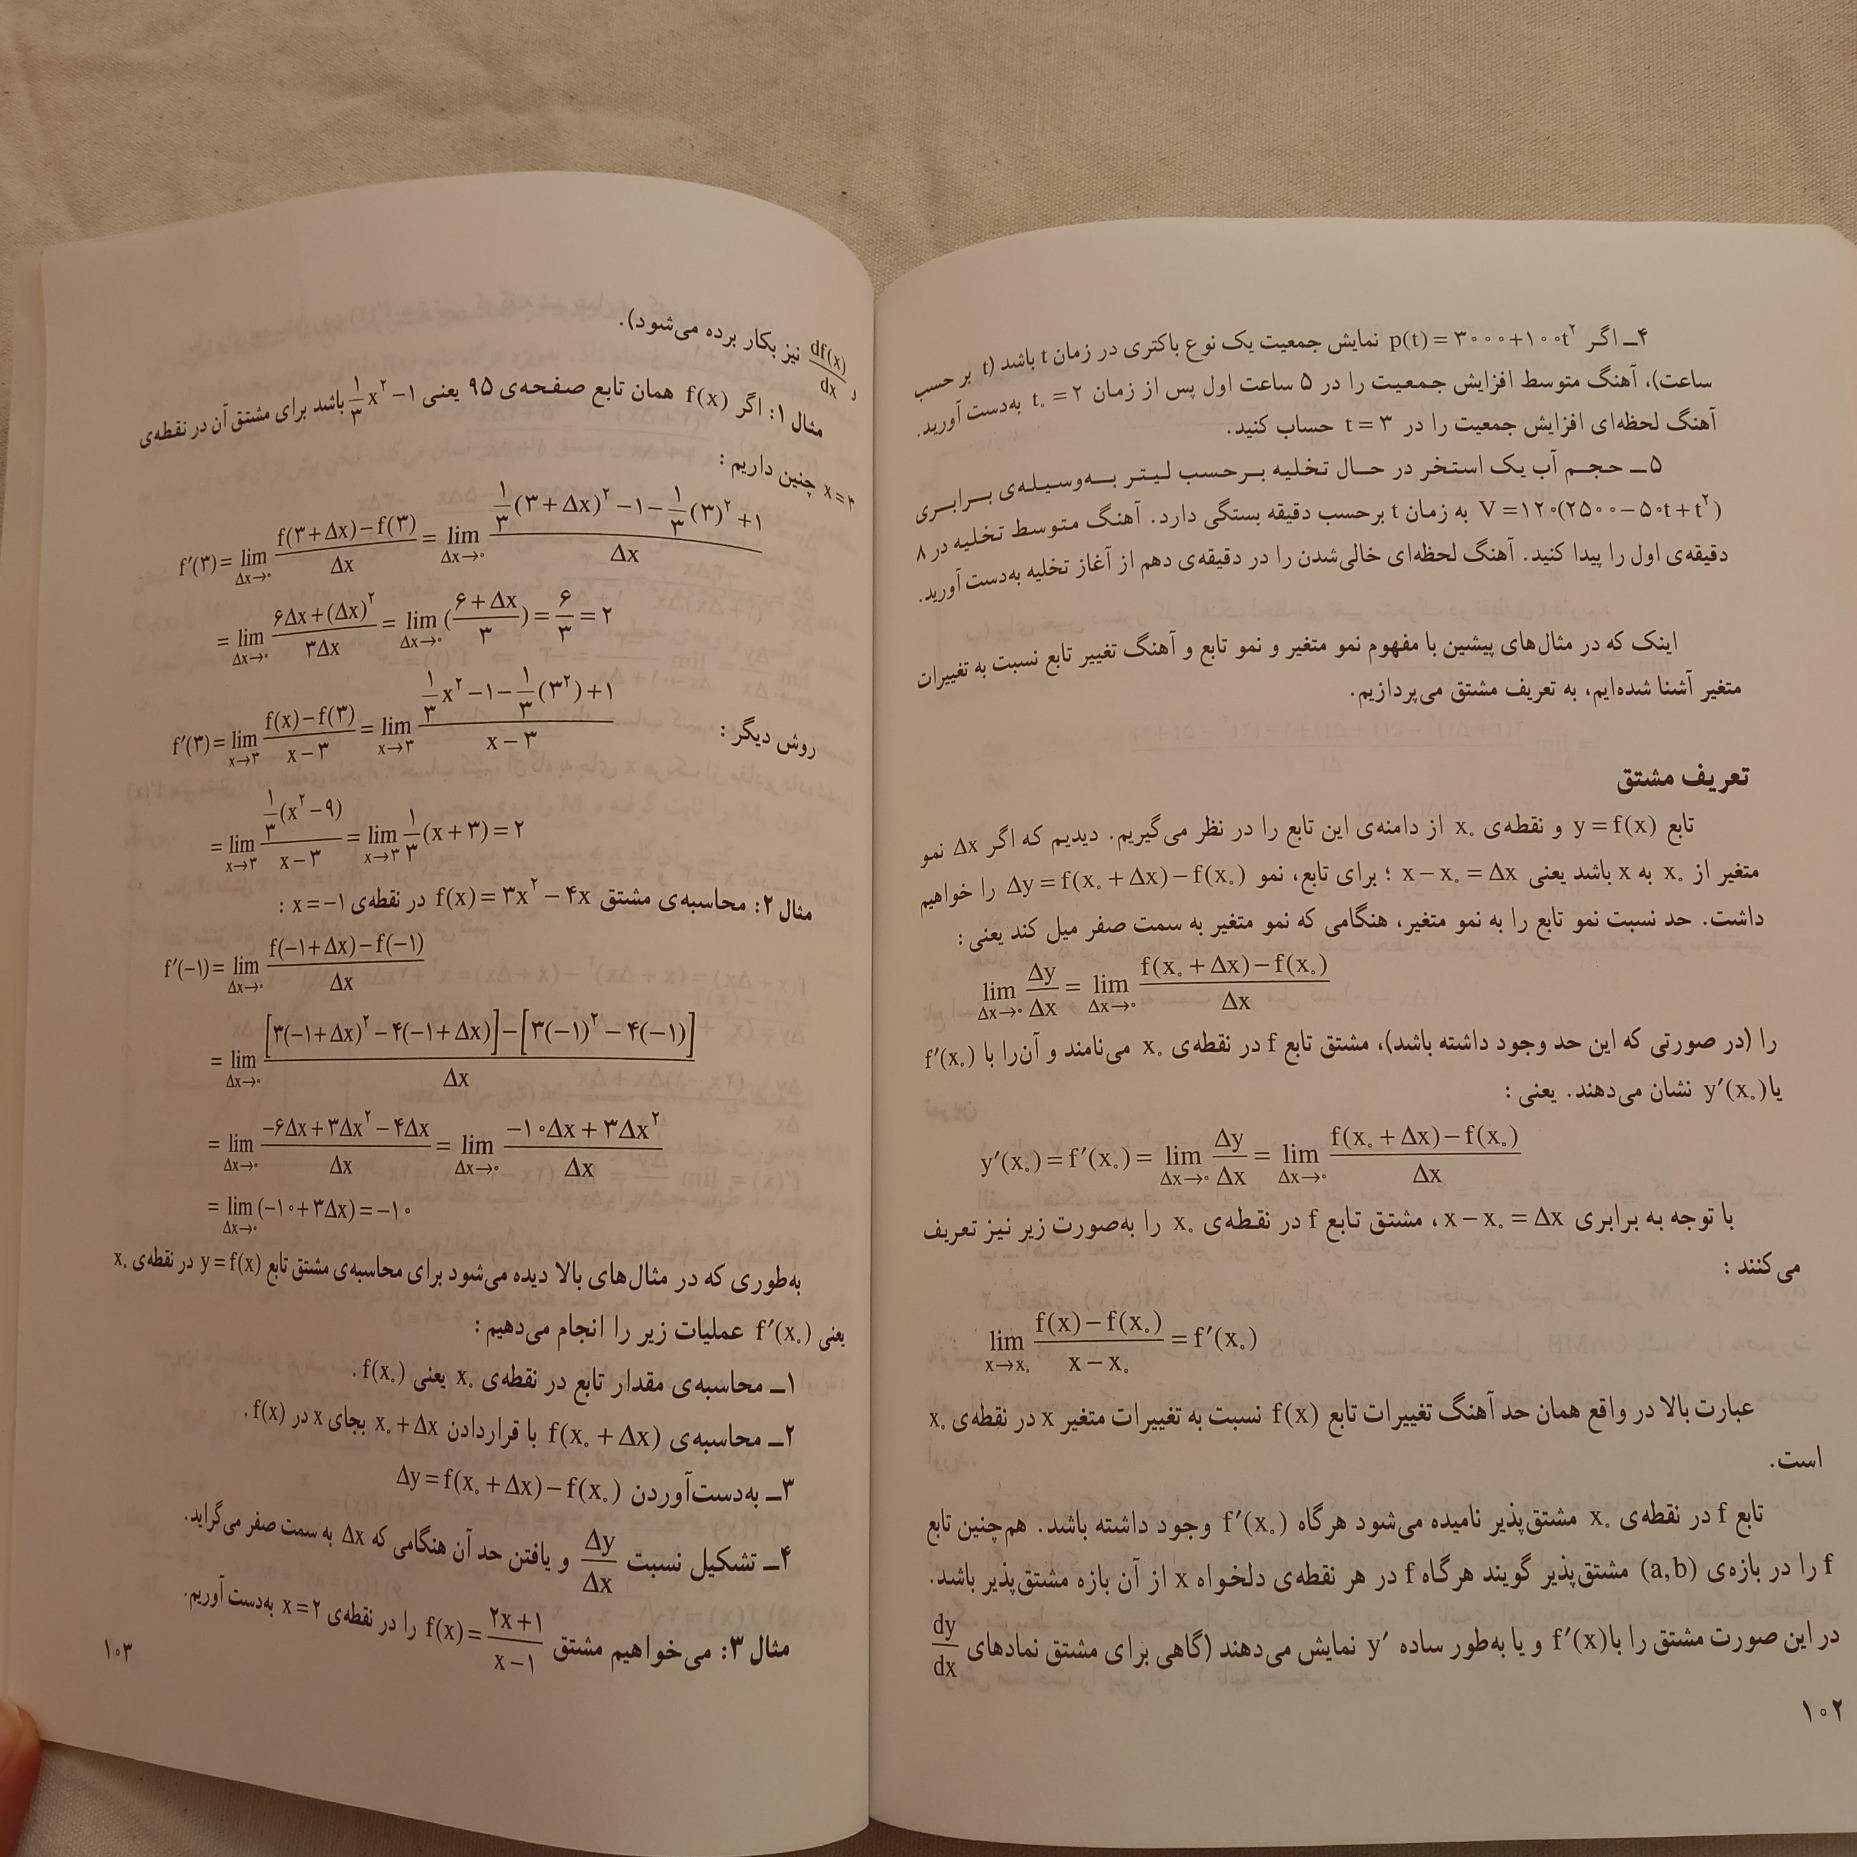 ۴ــ اگر p(t) = ۳۰۰۰+۱۰۰t² نمایش جمعیت یک نوع باکتری در زمان t باشد (t بر حسب
ساعت)، آهنگ متوسط افزایش جمعیت را در ۵ ساعت اول پس از زمان t₀ = ۲ به‌دست آورید.
آهنگ لحظه‌ای افزایش جمعیت را در t = ۳ حساب کنید.
۵ــ حجم آب یک استخر در حال تخلیه برحسب لیتر به‌وسیله‌ی برابری
V = ۱۲۰(۲۵۰۰ − ۵۰t + t²) به زمان t برحسب دقیقه بستگی دارد. آهنگ متوسط تخلیه در ۸
دقیقه‌ی اول را پیدا کنید. آهنگ لحظه‌ای خالی‌شدن را در دقیقه‌ی دهم از آغاز تخلیه به‌دست آورید.
اینک که در مثال‌های پیشین با مفهوم نمو متغیر و نمو تابع و آهنگ تغییر تابع نسبت به تغییرات
متغیر آشنا شده‌ایم، به تعریف مشتق می‌پردازیم.
تعریف مشتق
تابع y = f(x) و نقطه‌ی x₀ از دامنه‌ی این تابع را در نظر می‌گیریم. دیدیم که اگر Δx نمو
متغیر از x₀ به x باشد یعنی x − x₀ = Δx ؛ برای تابع، نمو Δy = f(x₀ + Δx) − f(x₀) را خواهیم
داشت. حد نسبت نمو تابع را به نمو متغیر، هنگامی که نمو متغیر به سمت صفر میل کند یعنی :
lim_{Δx→۰} Δy/Δx = lim_{Δx→۰} (f(x₀ + Δx) − f(x₀))/Δx
را (در صورتی که این حد وجود داشته باشد)، مشتق تابع f در نقطه‌ی x₀ می‌نامند و آن‌را با f′(x₀)
یا y′(x₀) نشان می‌دهند. یعنی :
y′(x₀) = f′(x₀) = lim_{Δx→۰} Δy/Δx = lim_{Δx→۰} (f(x₀ + Δx) − f(x₀))/Δx
با توجه به برابری x − x₀ = Δx ، مشتق تابع f در نقطه‌ی x₀ را به‌صورت زیر نیز تعریف
می‌کنند :
lim_{x→x₀} (f(x) − f(x₀))/(x − x₀) = f′(x₀)
عبارت بالا در واقع همان حد آهنگ تغییرات تابع f(x) نسبت به تغییرات متغیر x در نقطه‌ی x₀
است.
تابع f در نقطه‌ی x₀ مشتق‌پذیر نامیده می‌شود هرگاه f′(x₀) وجود داشته باشد. هم‌چنین تابع
f را در بازه‌ی (a,b) مشتق‌پذیر گویند هرگاه f در هر نقطه‌ی دلخواه x از آن بازه مشتق‌پذیر باشد.
در این صورت مشتق را با f′(x) و یا به‌طور ساده y′ نمایش می‌دهند (گاهی برای مشتق نمادهای dy/dx
۱۰۲
و df(x)/dx نیز بکار برده می‌شود).
مثال ۱: اگر f(x) همان تابع صفحه‌ی ۹۵ یعنی ۱/۳ x² − ۱ باشد برای مشتق آن در نقطه‌ی
x = ۳ چنین داریم :
f′(۳) = lim_{Δx→۰} (f(۳+Δx) − f(۳))/Δx = lim_{Δx→۰} (۱/۳(۳+Δx)² − ۱ − ۱/۳(۳)² + ۱)/Δx
= lim_{Δx→۰} (۶Δx + (Δx)²)/۳Δx = lim_{Δx→۰} ((۶+Δx)/۳) = ۶/۳ = ۲
روش دیگر : f′(۳) = lim_{x→۳} (f(x) − f(۳))/(x − ۳) = lim_{x→۳} (۱/۳ x² − ۱ − ۱/۳(۳²) + ۱)/(x − ۳)
= lim_{x→۳} (۱/۳(x² − ۹))/(x − ۳) = lim_{x→۳} ۱/۳(x + ۳) = ۲
مثال ۲: محاسبه‌ی مشتق f(x) = ۳x² − ۴x در نقطه‌ی x = −۱ :
f′(−۱) = lim_{Δx→۰} (f(−۱+Δx) − f(−۱))/Δx
= lim_{Δx→۰} ([۳(−۱+Δx)² − ۴(−۱+Δx)] − [۳(−۱)² − ۴(−۱)])/Δx
= lim_{Δx→۰} (−۶Δx + ۳Δx² − ۴Δx)/Δx = lim_{Δx→۰} (−۱۰Δx + ۳Δx²)/Δx
= lim_{Δx→۰} (−۱۰ + ۳Δx) = −۱۰
به‌طوری که در مثال‌های بالا دیده می‌شود برای محاسبه‌ی مشتق تابع y = f(x) در نقطه‌ی x₀
یعنی f′(x₀) عملیات زیر را انجام می‌دهیم :
۱ــ محاسبه‌ی مقدار تابع در نقطه‌ی x₀ یعنی f(x₀).
۲ــ محاسبه‌ی f(x₀ + Δx) با قراردادن x₀ + Δx بجای x در f(x).
۳ــ به‌دست‌آوردن Δy = f(x₀ + Δx) − f(x₀)
۴ــ تشکیل نسبت Δy/Δx و یافتن حد آن هنگامی که Δx به سمت صفر می‌گراید.
مثال ۳: می‌خواهیم مشتق f(x) = (۲x+۱)/(x−۱) را در نقطه‌ی x = ۲ به‌دست آوریم.
۱۰۳